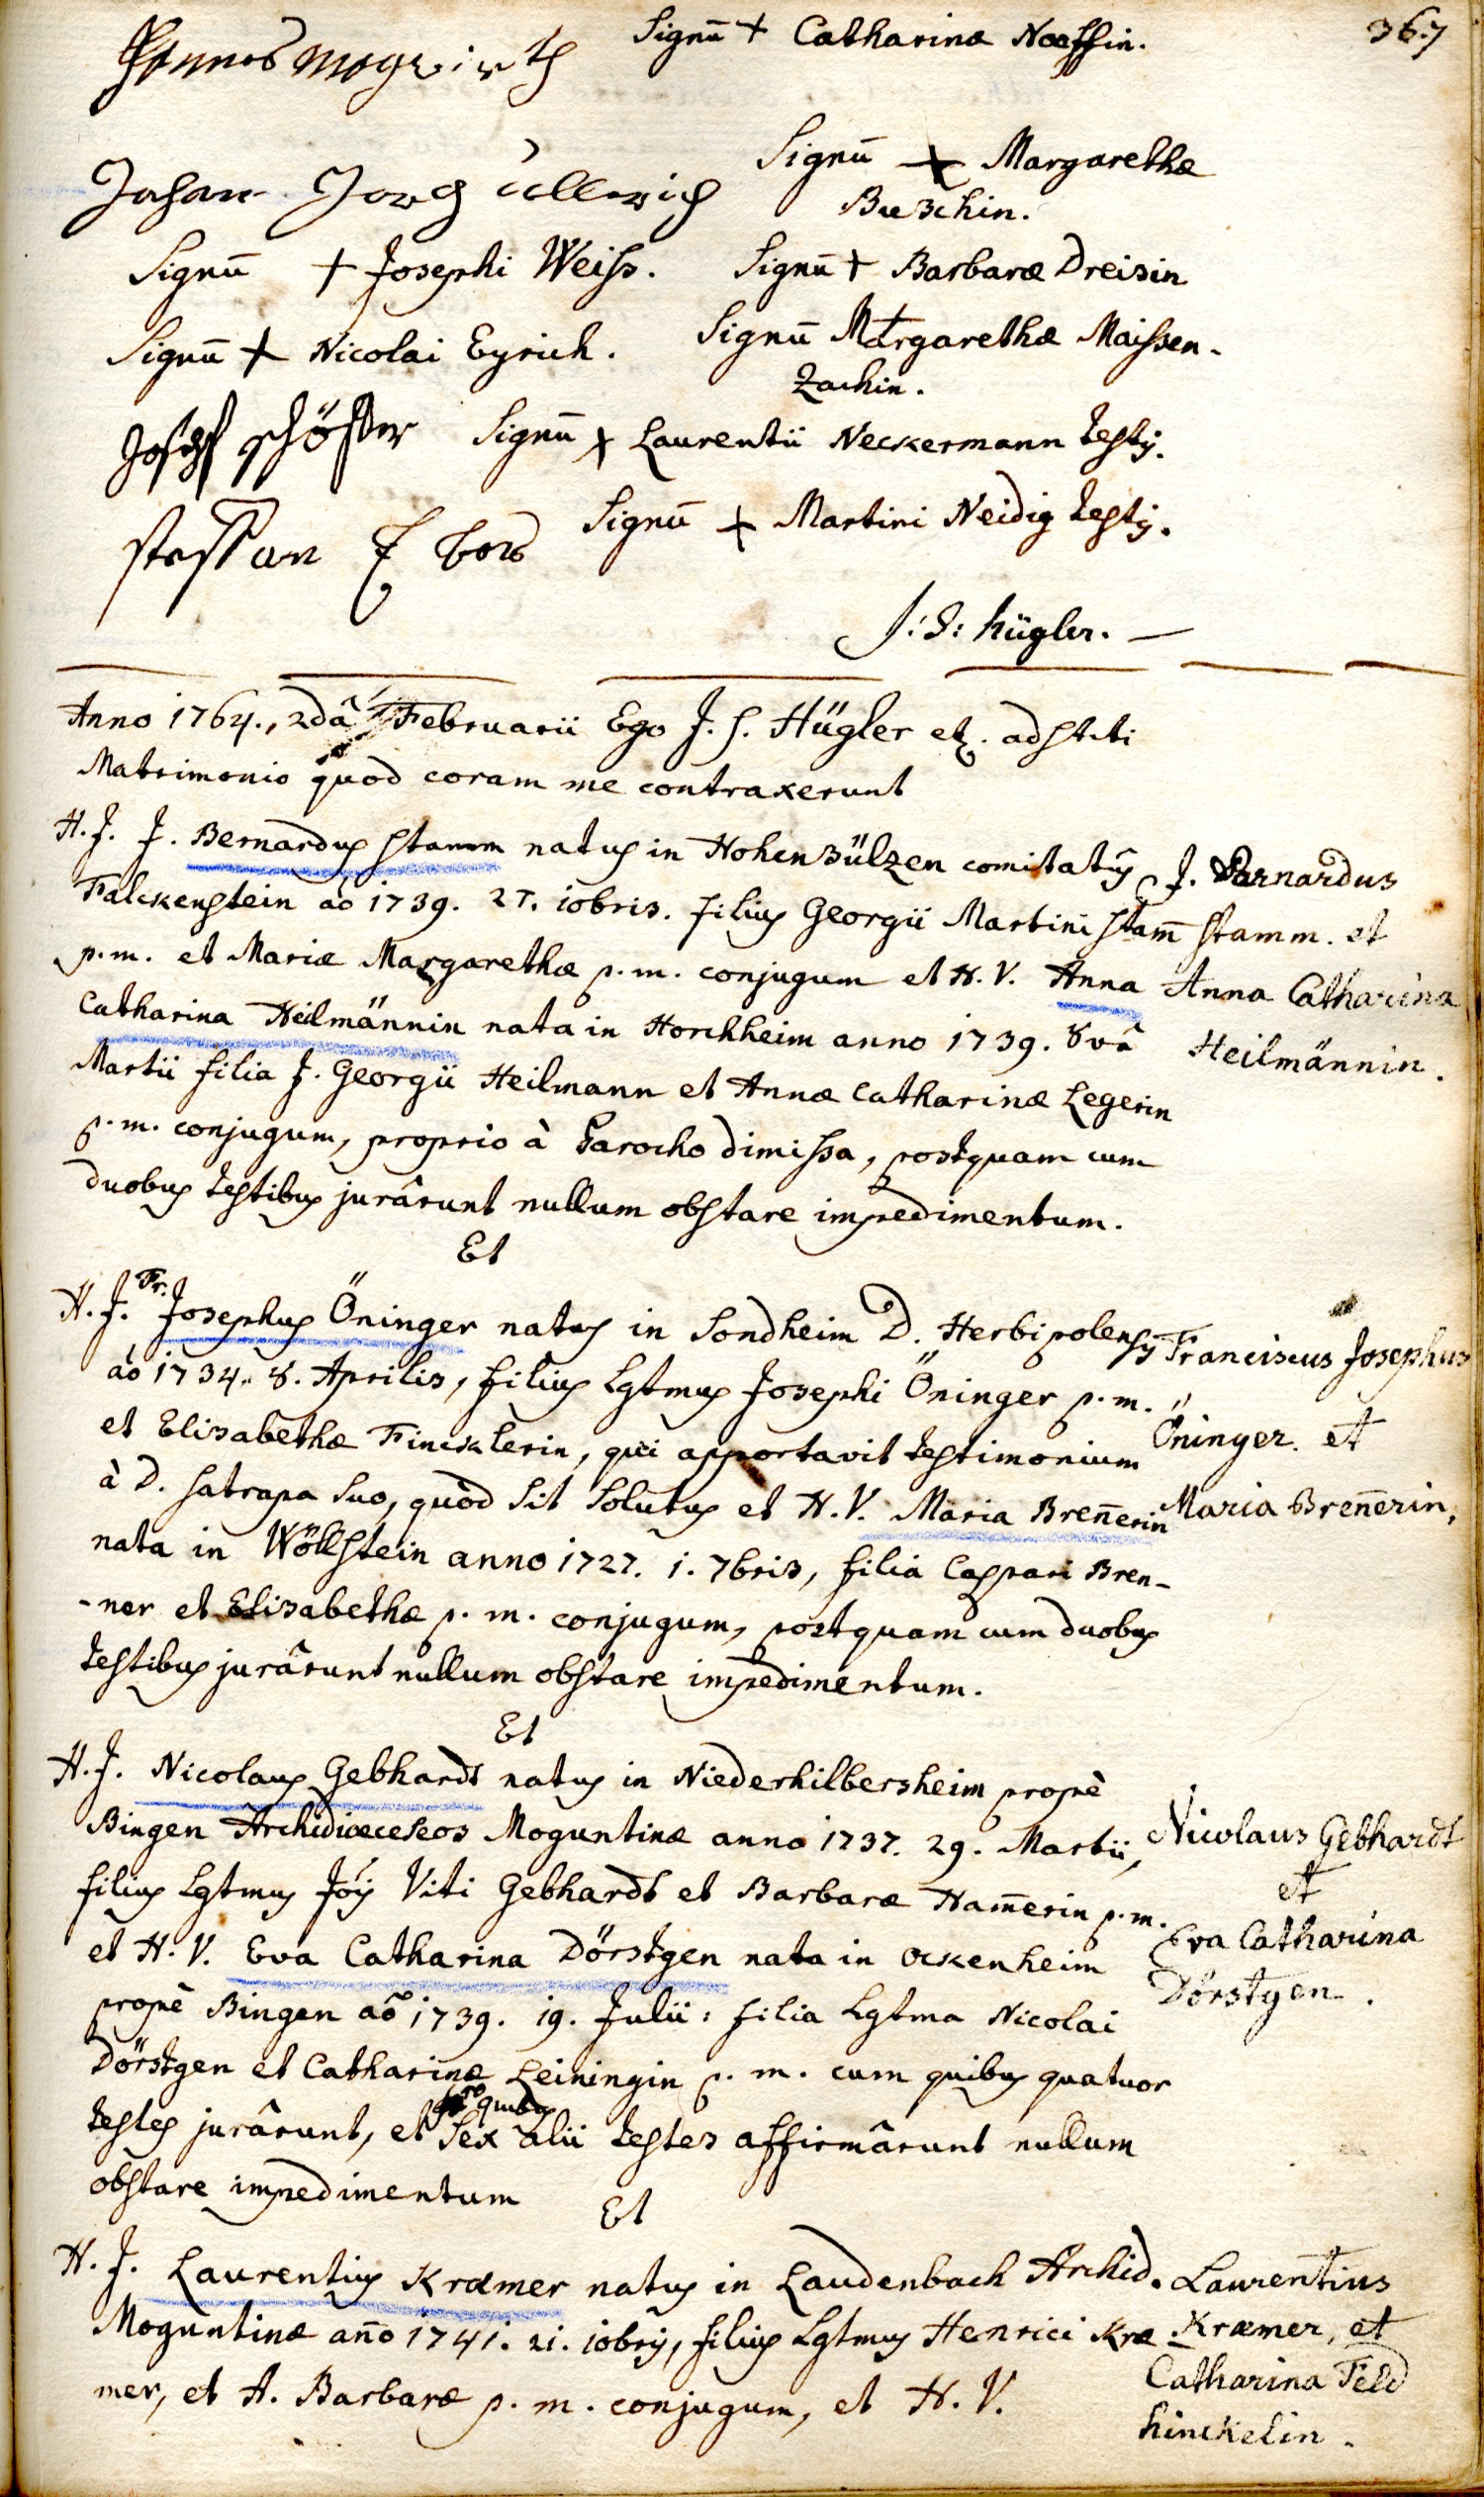 367
Signū + Catharinæ Noessin.
Hannes
Signū + Margarethæ
Buschin.
Johan Jorg ullerich
Signū + Josephi Weiss. Signū + Barbaræ Dreisin
Signū + Nicolai Eyrich. Signū M+argarethæ Maissen-
zachin.
Josehf schöffer Signū + Laurentii Neckermann testis.
steffan Signū + Martini Neidig testis.
J: S: Hügler. —
Anno 1764., 2dâ Februarii Ego J. S. Hügler etc. adstiti
Matrimonio quod coram me contraxerunt
H. J. J. Bernardus Stamm natus in Hohensülzen comitatus
Falckenstein aō 1739. 27. iobris. filius Georgii Martini Stam̄
p. m. et Mariæ Margarethæ p. m. conjugum et H. V. Anna
Catharina Heilmännin nata in Horchheim anno 1739. 8vâ
Martii filia J. Georgii Heilmann et Annæ Catharinæ Legerin
p. m. conjugum, proprio à Parocho dimissa, postquam cum
duobus testibus jurârunt nullum obstare impedimentum.
J. Barnardus
Stamm. et
Anna Catharina
Heilmännin.
Et
H. J. Fr. Josephus Öninger natus in Sondheim D. Herbipolensis
aō 1734. 8. Aprilis, filius Lgtmus Josephi Öninger p. m.
et Elisabethæ Fincklerin, qui apportavit testimonium
à D. Satrapa suo, quòd sit solutus et H. V. Maria Bren̄erin
nata in Wöllstein anno 1727. 1. 7bris, filia Caspari Bren-
-ner et Elisabethæ p. m. conjugum, postquam cum duobus
testibus jurârunt nullum obstare impedimentum.
Franciscus Josephus
Öninger. et
Maria Bren̄erin,
Et
H. J. Nicolaus Gebhardt natus in Niederhilbersheim propè
Bingen Archidioeceseos Moguntinæ anno 1737. 29. Martii,
filius Lgtmus Jois Viti Gebhardt et Barbaræ Ham̄erin p. m.
et H. V. Eva Catharina Dörstgen nata in Ockenheim
propè Bingen aō 1739. 19. Julii: filia Lgtma Nicolai
Dörstgen et Catharinæ Leiningin p. m. cum quibus quatuor
testes jurârunt, et pro quibus sex alii testes affirmârunt nullum
obstare impedimentum
Nicolaus Gebhardt
et
Eva Catharina
Dörstgen.
Et
H. J. Laurentius Kræmer natus in Laudenbach Archid.
Moguntinæ an̄o 1741. 21. iobris, filius Lgtmus Henrici Kræ
mer, et A. Barbaræ p. m. conjugum, et H. V.
Laurentius
Kræmer, et
Catharina Feld
hinckelin.